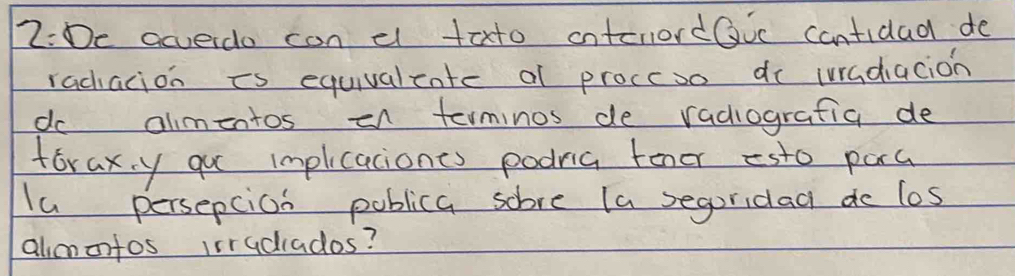 2: De acuerdo con el texto anterior ¿Que cantidad de
radiación es equivalente al proceso de irradiación
de alimentos en terminos de radiografia de
tórax, y que implicaciones podria tener esto para
la persepción publica sobre la seguridad de los
alimentos irradiados?